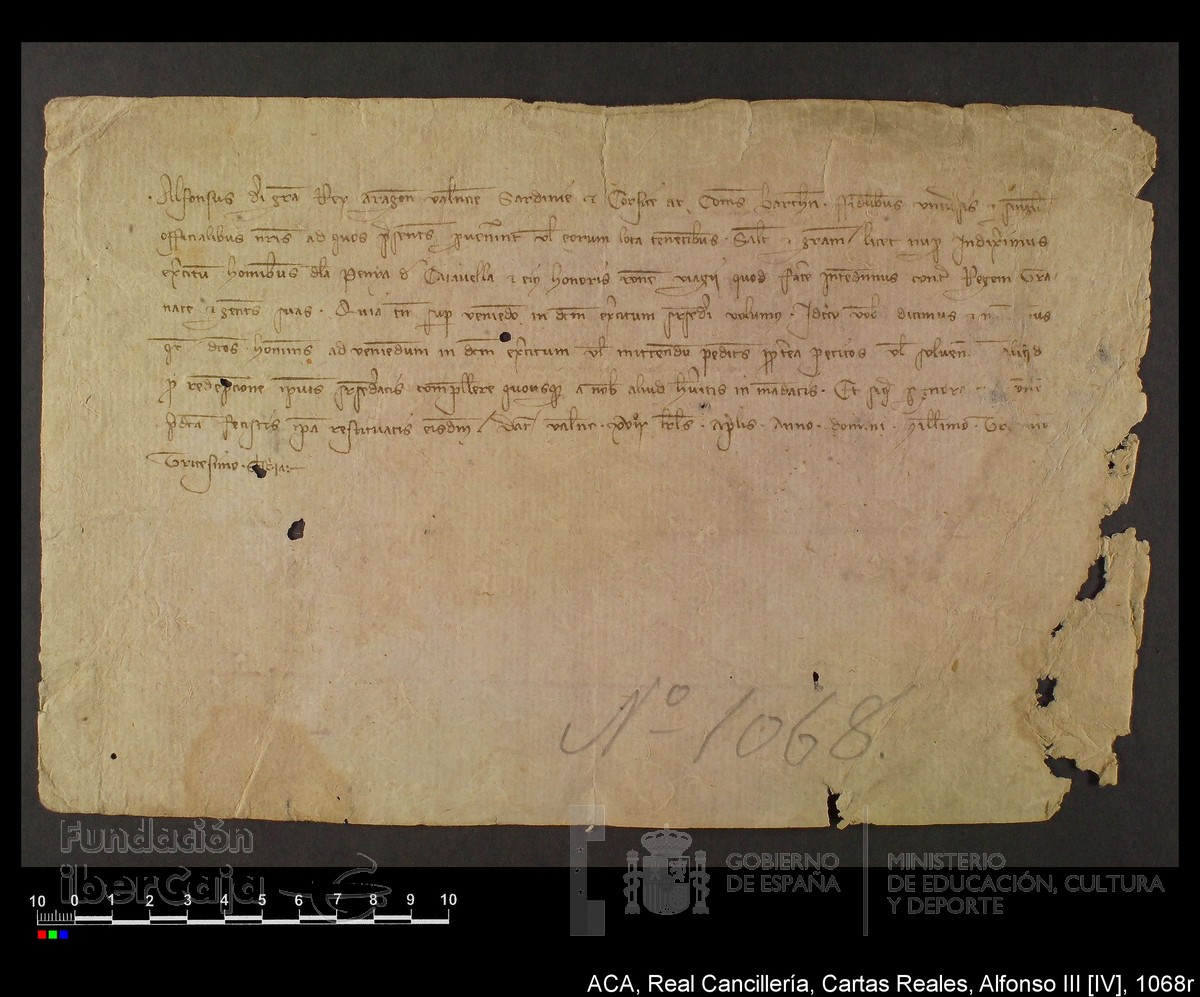 Alfonsus dei gra Rex aragon valencie Sardinie et Corsice ac Comes barchn fidelibus universis et singulis
officialibus nris ad quos presentes pervenerint vel eorum loca tenentibus Saltm et gram licet nuper Indixerimus
exercitum hominibus dela Penya et eius honoris racione viagii quod facere Intendimus contra Regem Gra
nate et gentes suas Quia tamen super veniendo in dcm exercitum volumus Idcirco vobis dicimus et
dictos homines ad veniendum in dcm exercitum vel mittendum pedites propterea petitos vel
pro redempcione compellere quousque a nobis aliud habueritis in mandatis Et siqua
predicta fecistis ipsa restituatis eisdem Dat Valnc kls Aprilis Anno domini Millimo
Tricesimo
Nº 1068.
Fundación
iberCaja
GOBIERNO
DE ESPAÑA
MINISTERIO
DE EDUCACIÓN, CULTURA
Y DEPORTE
10 0 1 2 3 4 5 6 7 8 9 10
ACA, Real Cancillería, Cartas Reales, Alfonso III [IV], 1068r